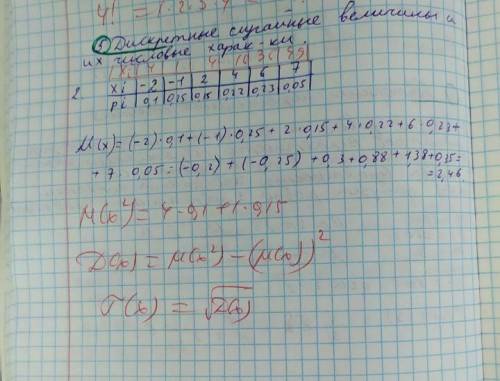 4! = 1·2·3·4 =
5) Дискретные случайные величины и
их числовые харак-ки.
xi 4 4 16 36 49
2 xi -2 -1 2 4 6 7
pi 0,1 0,25 0,15 0,22 0,23 0,05
M(x)=(-2)·0,1+(-1)·0,25+2·0,15+4·0,22+6·0,23+
+7·0,05=(-0,2)+(-0,25)+0,3+0,88+1,38+0,35=
=2,46.
M(x²)=4·0,1+1·0,15
D(x)=M(x²)-(M(x))²
σ(x)=√D(x)